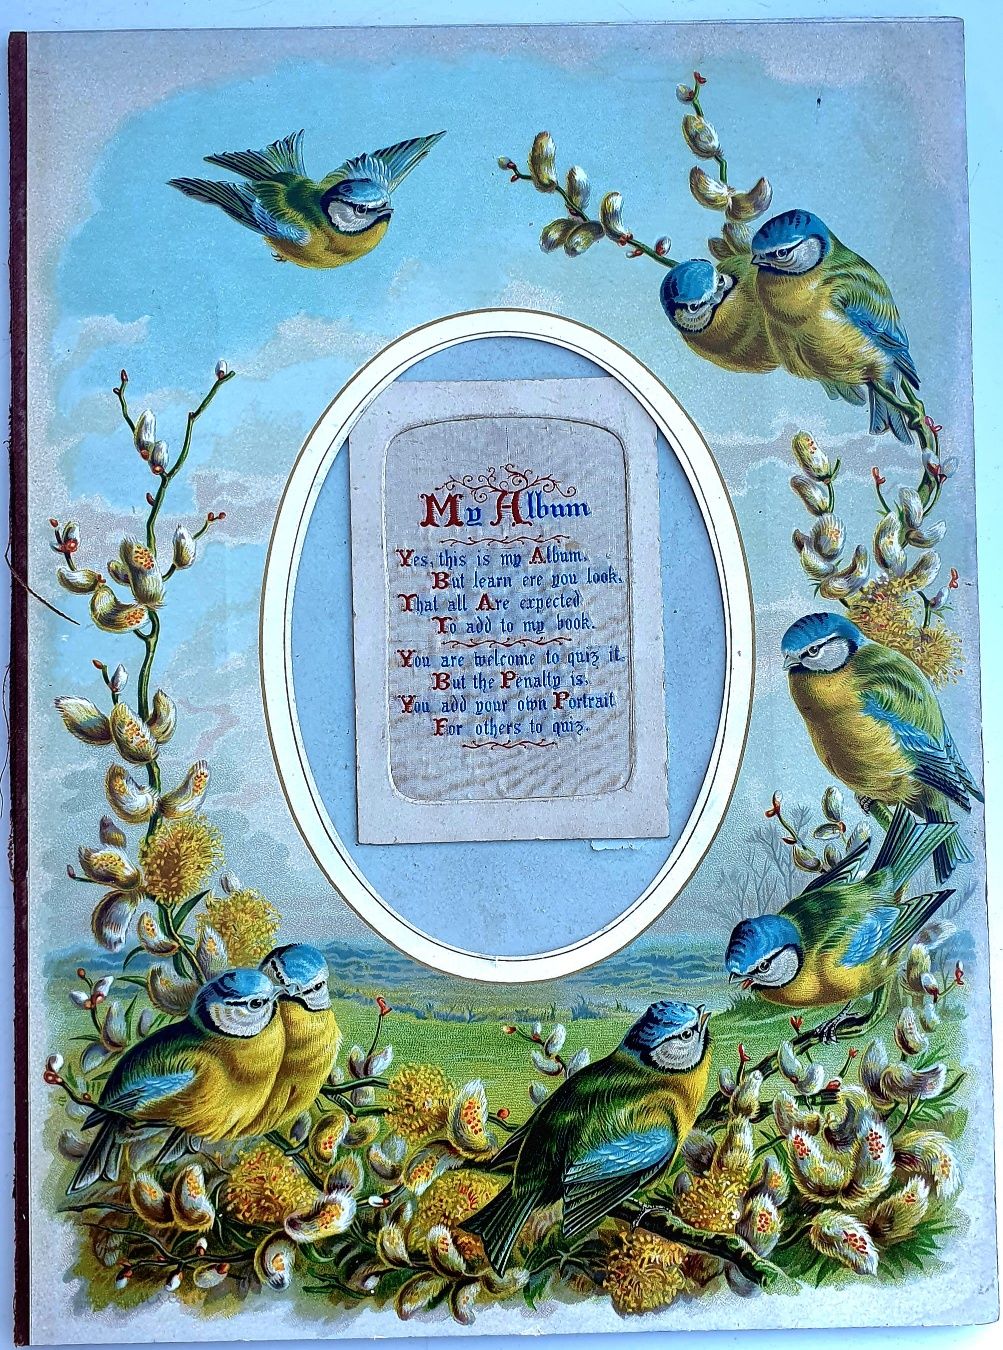 My Album
Yes, this is my Album.
But learn ere you look.
That all Are expected
To add to my book.
You are welcome to quiz it.
But the Penalty is,
You add your own Portrait
For others to quiz.